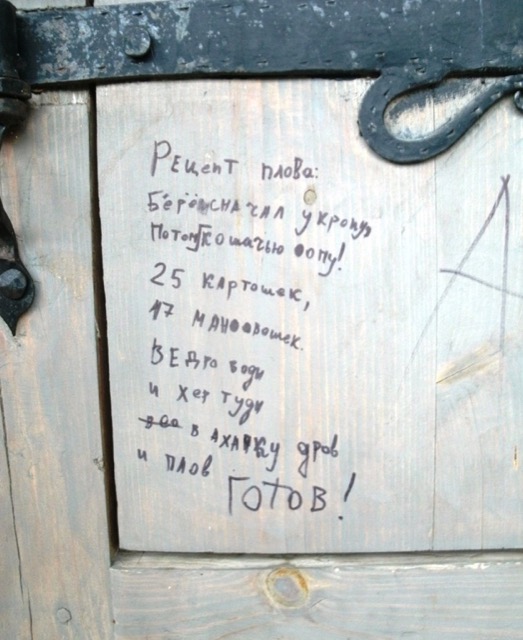 Рецепт плова:
Берём сначал укропу,
Потом кошачью попу!
25 картошек,
17 мандовошек.
ВЕдро воды
и хер туды
в АХАПКУ дров
и плов
ГОТОВ!